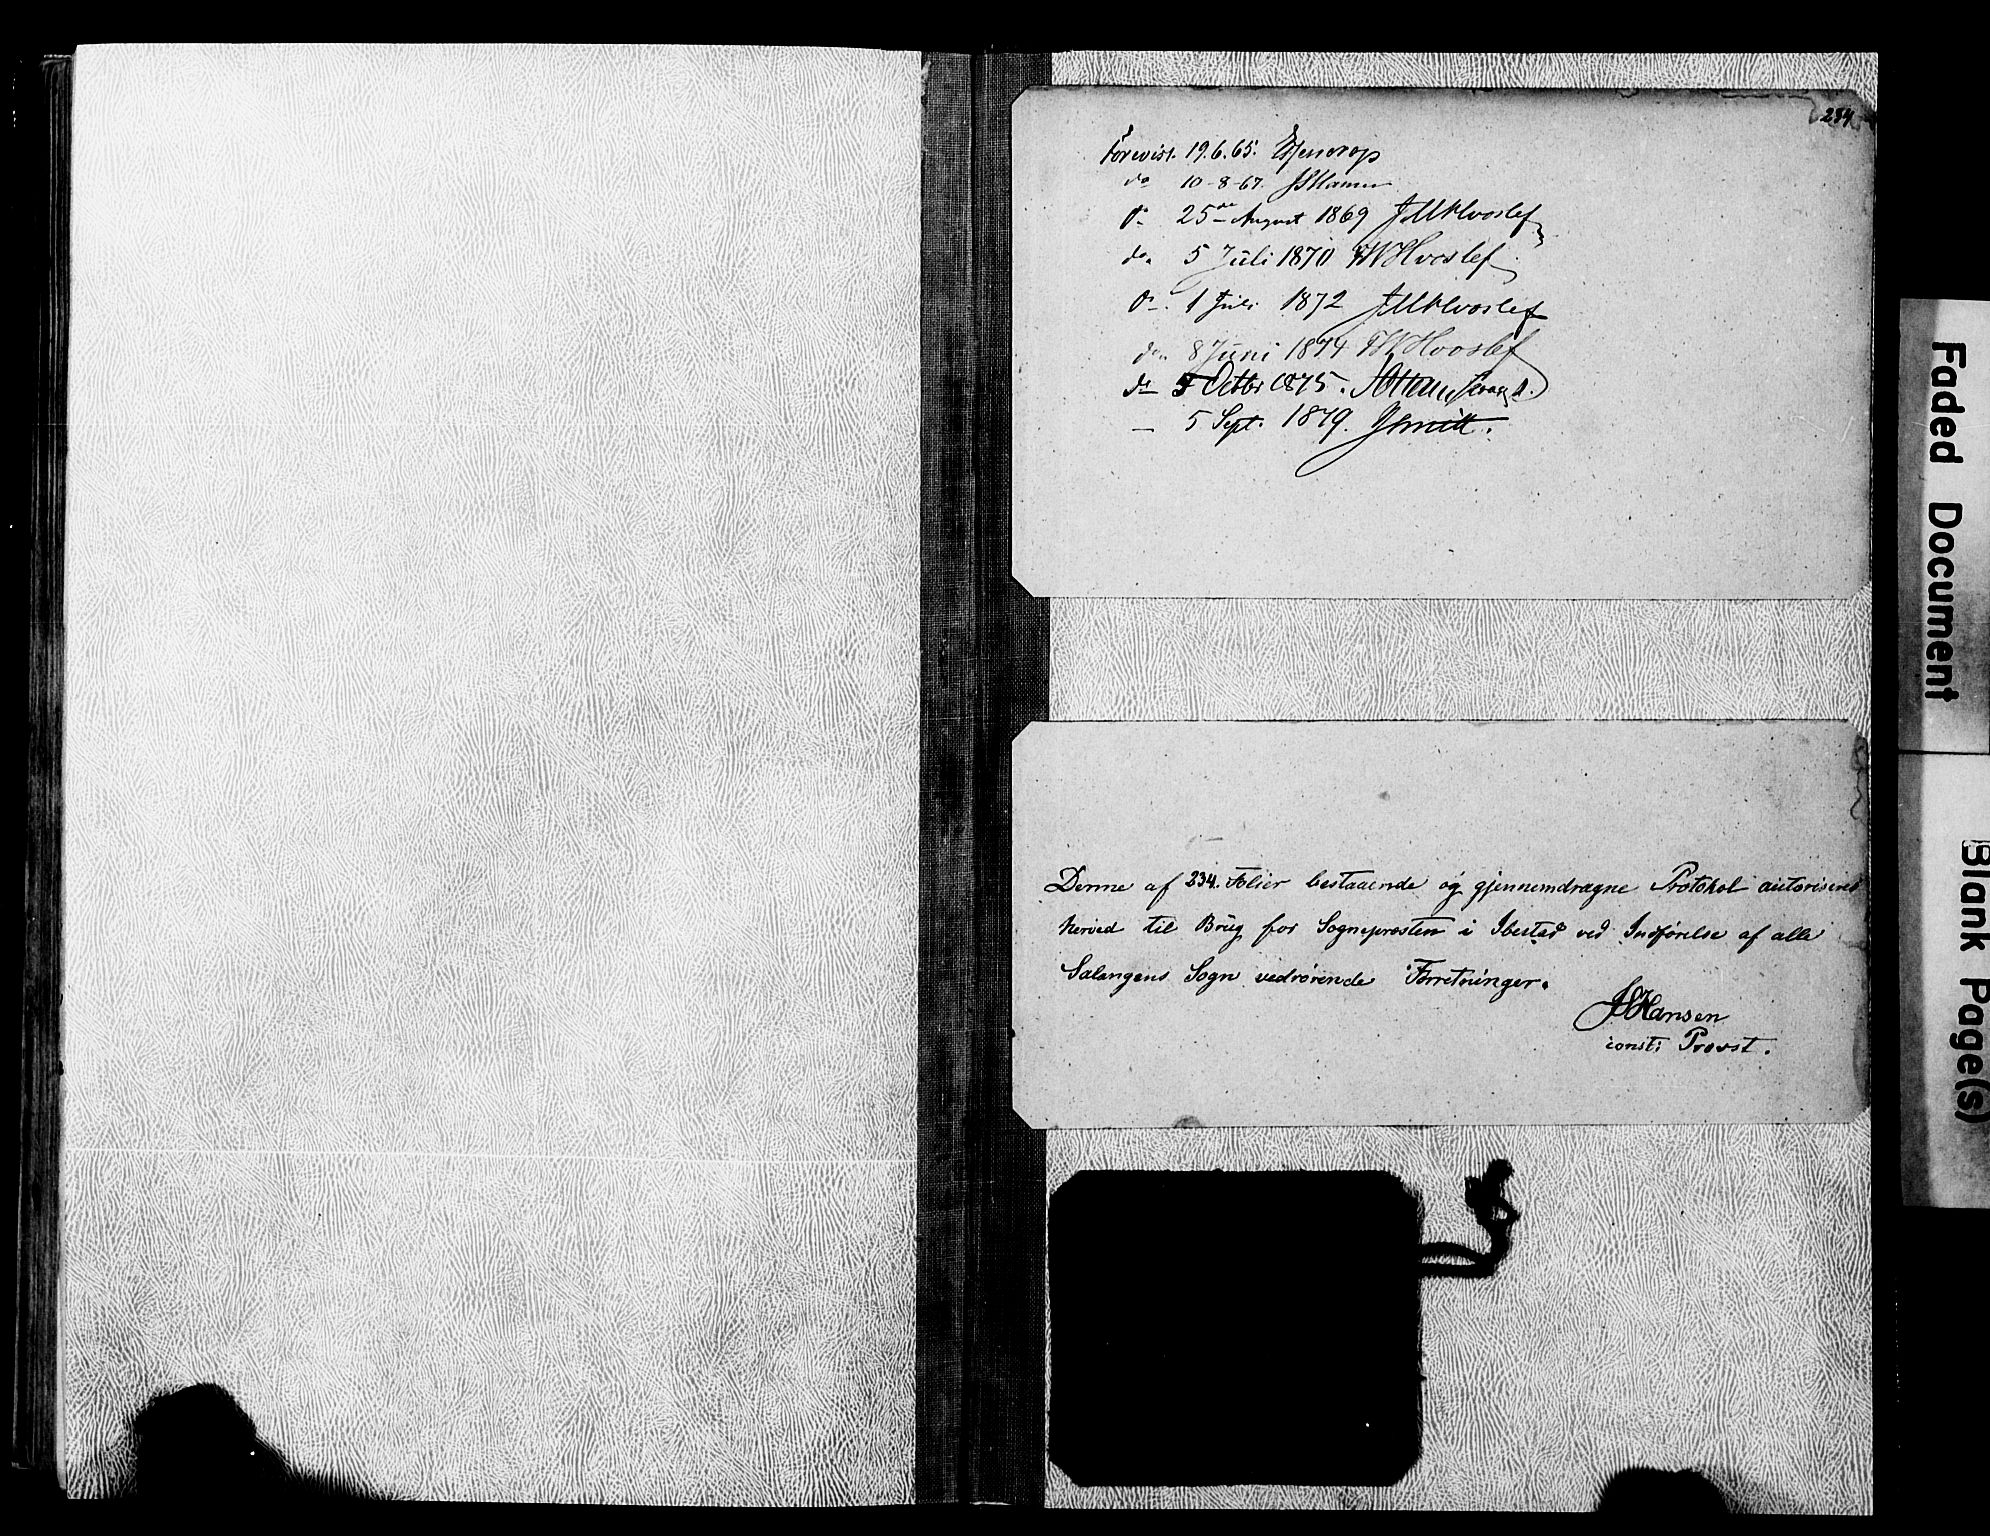 234
Forevist. 19.6.65.
do 10-8-67. JSHansen
do 25de August 1869 FWHvoslef
do 5 Juli 1870 FWHvoslef
do 1 Juli 1872 FWHvoslef
do 8 Juni 1874 FWHvoslef
do Octbr 1875.
— 5 Sept. 1879. JSmitt.
Denne af 234. Folier bestaaende og gjennemdragne Protokol autoriseres
herved til Brug for Sognepresten i Ibestad ved Indførelse af alle
Salangens Sogn vedrørende Forretninger.
JSHansen
const: Provst.
Faded Document
Blank Page(s)